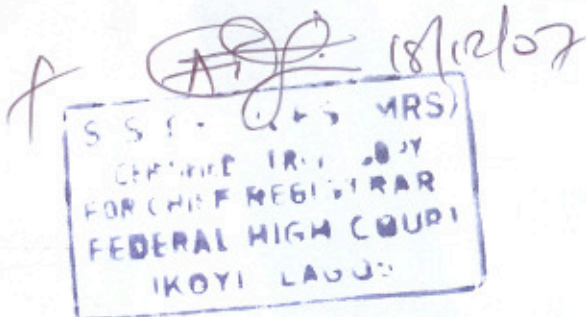 18/12/07
MRS)
CERTIFIED TRUE COPY
FOR CHIEF REGISTRAR
FEDERAL HIGH COURT
IKOYI LAGOS